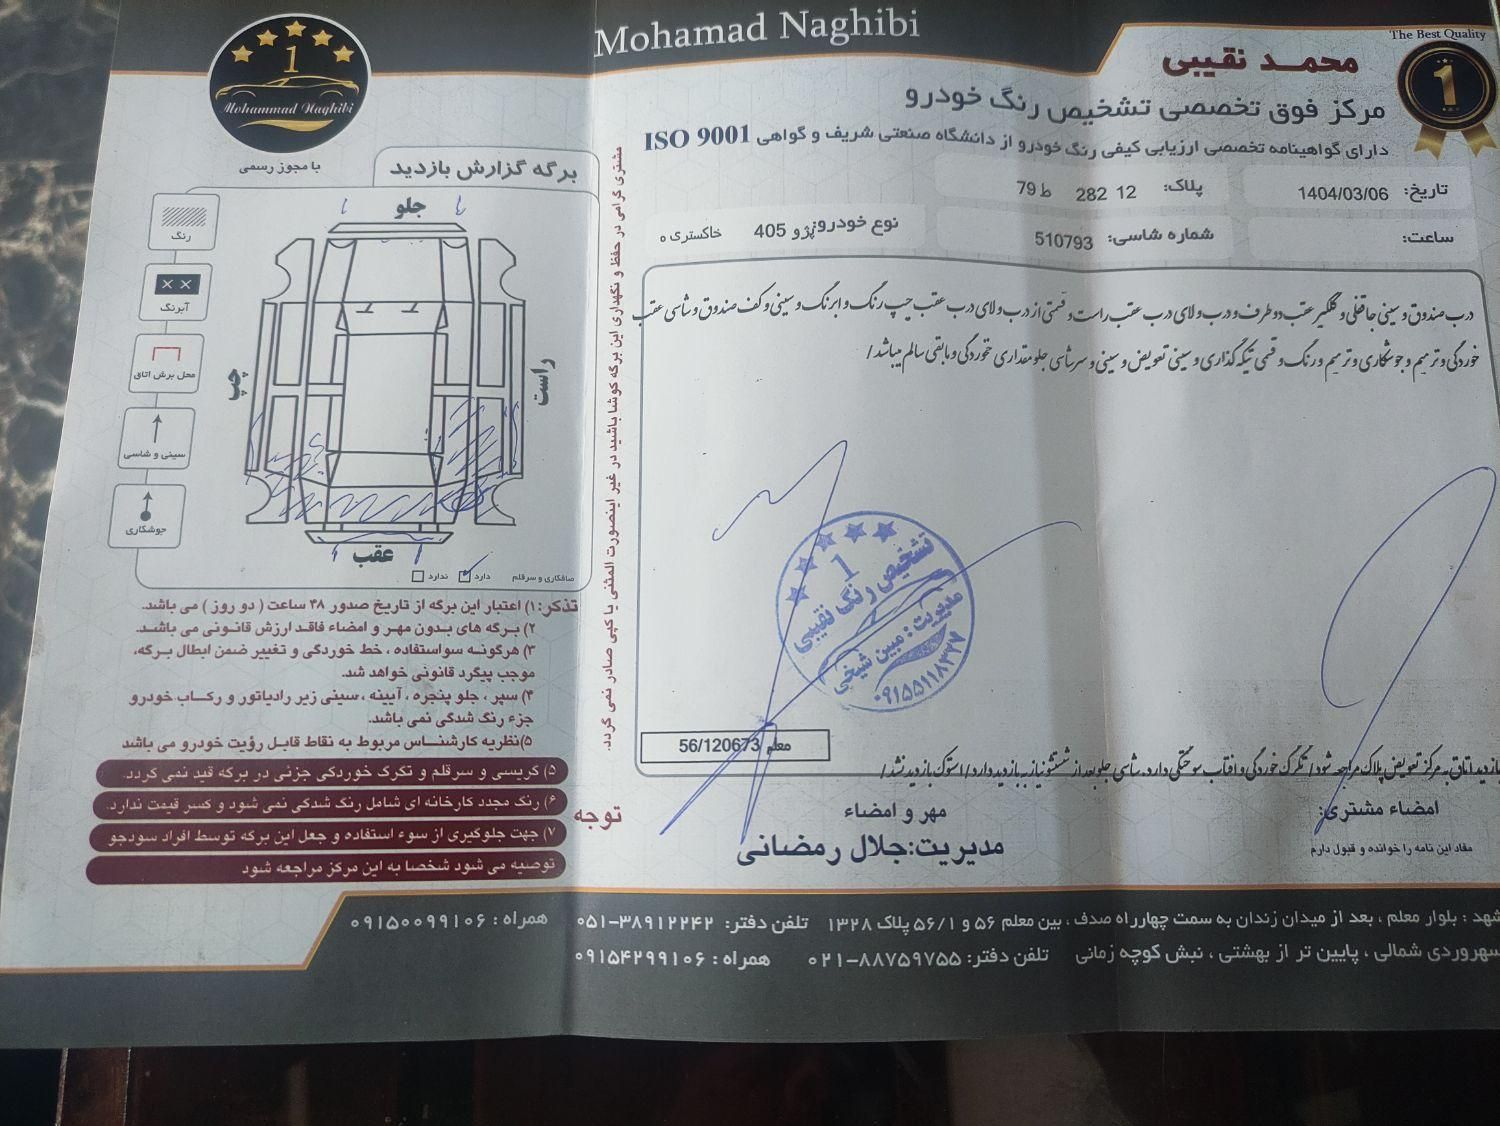 Mohamad Naghibi
The Best Quality
1
محمد نقیبی
مرکز فوق تخصصی تشخیص رنگ خودرو
دارای گواهینامه تخصصی ارزیابی کیفی رنگ خودرو از دانشگاه صنعتی شریف و گواهی ISO 9001
تاریخ: 1404/03/06
پلاک: 12 282 ط 79
ساعت:
شماره شاسی: 510793
نوع خودرو: پژو 405 خاکستری ه
درب صندوق و سینی جاقفلی و گلگیر عقب دو طرف و درب و لای درب عقب راست و قسمتی از درب و لای درب عقب چپ رنگ و ابرنگ و سینی و کف صندوق و شاسی عقب
خوردگی و ترمیم و جوشکاری و ترمیم و رنگ و قسمتی تیکه گذاری و سینی تعویض و سینی و سرشاسی جلو مقداری خوردگی و مابقی سالم میباشد/
1
تشخیص رنگ نقیبی
مدیریت: مبین شیخی
معلم 56/120673
بازدید اتاق به مرکز تعویض پلاک مراجعه شود/ تگرگ خوردگی و افتاب سوختگی دارد. شاسی جلو بعد از شستشو نیاز به بازدید دارد/ استوک بازدید نشد/
امضاء مشتری:
مفاد این نامه را خوانده و قبول دارم
مهر و امضاء
مدیریت: جلال رمضانی
1
Mohammad Naghibi
با مجوز رسمی
برگه گزارش بازدید
رنگ
× ×
آبرنگ
محل برش اتاق
سینی و شاسی
جوشکاری
جلو
چپ
راست
عقب
صافکاری و سرقلم دارد ندارد
مشتری گرامی در حفظ و نگهداری این برگه کوشا باشید در غیر اینصورت المثنی یا کپی صادر نمی گردد.
تذکر: ۱) اعتبار این برگه از تاریخ صدور ۴۸ ساعت ( دو روز ) می باشد.
۲) برگه های بدون مهر و امضاء فاقد ارزش قانونی می باشد.
۳) هرگونه سواستفاده ، خط خوردگی و تغییر ضمن ابطال برگه،
موجب پیگرد قانونی خواهد شد.
۴) سپر ، جلو پنجره ، آیینه ، سینی زیر رادیاتور و رکاب خودرو
جزء رنگ شدگی نمی باشد.
۵)نظریه کارشناس مربوط به نقاط قابل رؤیت خودرو می باشد
توجه
۵) گریسی و سرقلم و تگرگ خوردگی جزئی در برگه قید نمی گردد.
۶) رنگ مجدد کارخانه ای شامل رنگ شدگی نمی شود و کسر قیمت ندارد.
۷) جهت جلوگیری از سوء استفاده و جعل این برگه توسط افراد سودجو
توصیه می شود شخصا به این مرکز مراجعه شود
شهد : بلوار معلم ، بعد از میدان زندان به سمت چهارراه صدف ، بین معلم ۵۶ و ۵۶/۱ پلاک ۱۳۲۸ تلفن دفتر: ۳۸۹۱۲۲۴۲-۰۵۱ همراه : ۰۹۱۵۰۰۹۹۱۰۶
سهروردی شمالی ، پایین تر از بهشتی ، نبش کوچه زمانی تلفن دفتر: ۸۸۷۵۹۷۵۵-۰۲۱ همراه : ۰۹۱۵۴۲۹۹۱۰۶